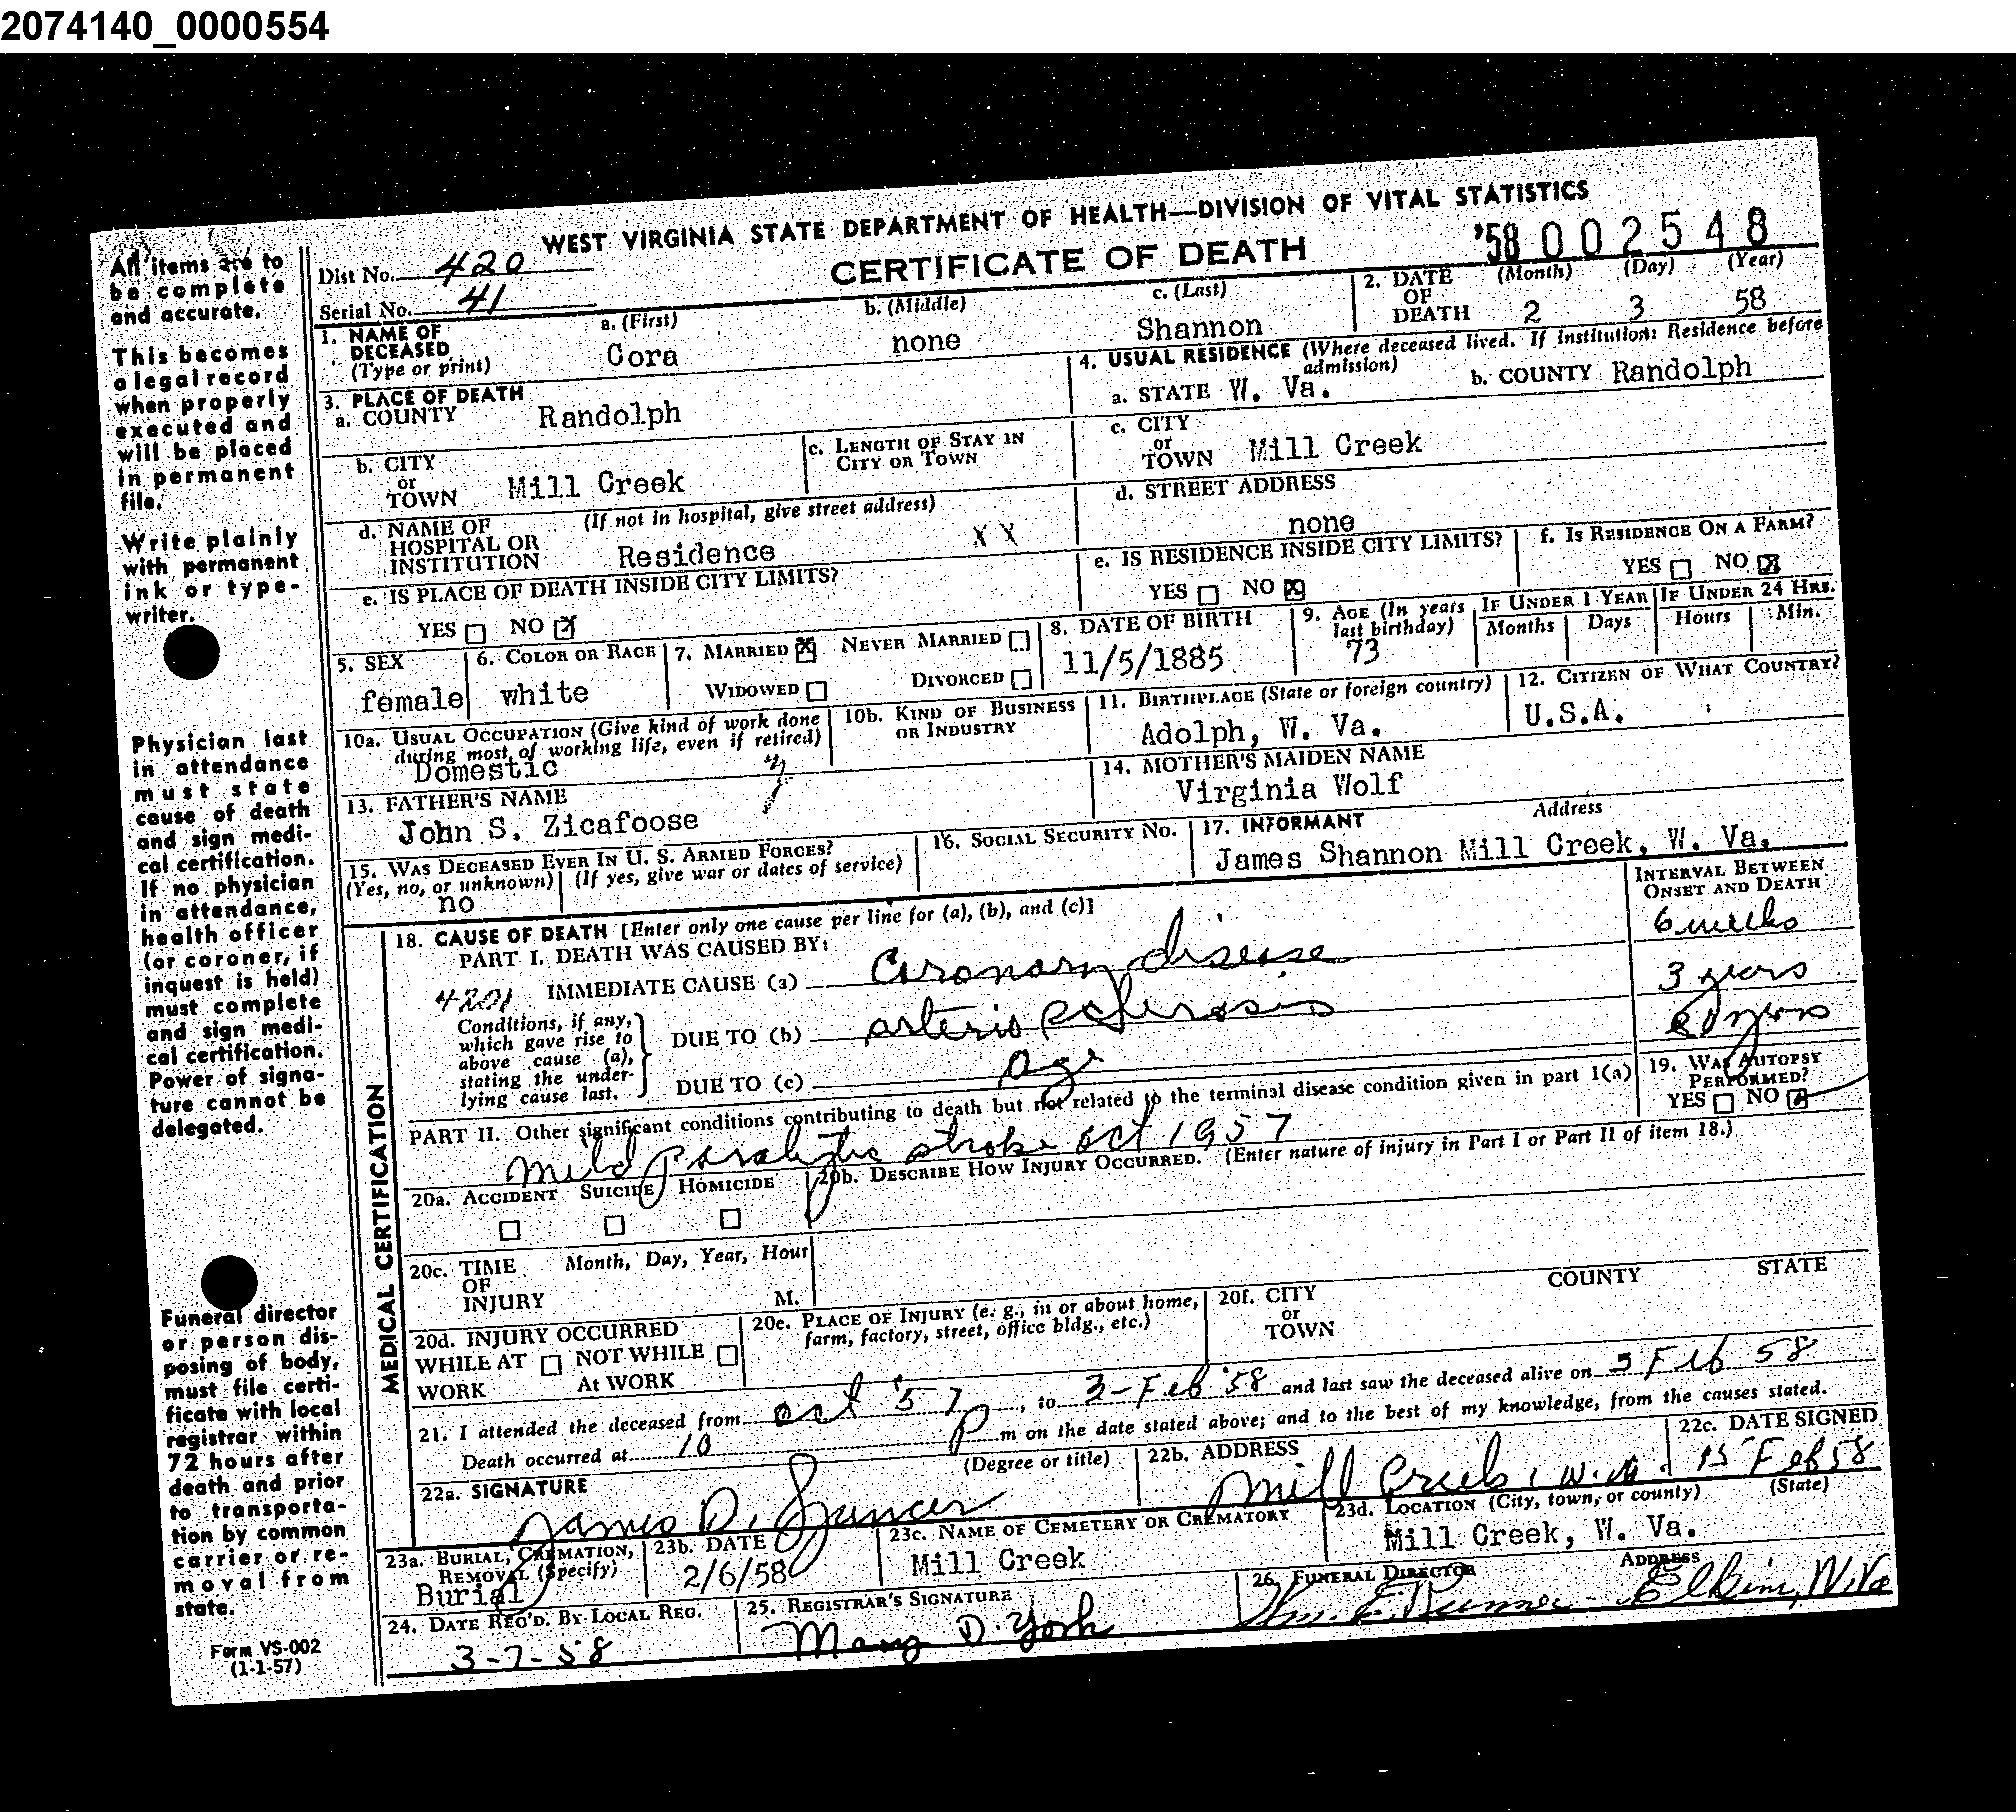 2074140_0000554
WEST VIRGINIA STATE DEPARTMENT OF HEALTH—DIVISION OF VITAL STATISTICS
CERTIFICATE OF DEATH
'58 002548
Dist No. 420
Serial No. 41
All items are to
be complete
and accurate.
This becomes
a legal record
when properly
executed and
will be placed
in permanent
file.
Write plainly
with permanent
ink or type-
writer.
Physician last
in attendance
must state
cause of death
and sign medi-
cal certification.
If no physician
in attendance,
health officer
(or coroner, if
inquest is held)
must complete
and sign medi-
cal certification.
Power of signa-
ture cannot be
delegated.
Funeral director
or person dis-
posing of body,
must file certi-
ficate with local
registrar within
72 hours after
death and prior
to transporta-
tion by common
carrier or re-
moval from
state.
Form VS-002
(1-1-57)
1. NAME OF DECEASED (Type or print)
a. (First) Cora
b. (Middle) none
c. (Last) Shannon
2. DATE OF DEATH (Month) (Day) (Year)
2 3 58
3. PLACE OF DEATH
a. COUNTY Randolph
b. CITY or TOWN Mill Creek
c. LENGTH OF STAY IN CITY OR TOWN
d. NAME OF HOSPITAL OR INSTITUTION (If not in hospital, give street address)
Residence X X
e. IS PLACE OF DEATH INSIDE CITY LIMITS?
YES NO X
4. USUAL RESIDENCE (Where deceased lived. If institution: Residence before admission)
a. STATE W. Va. b. COUNTY Randolph
c. CITY or TOWN Mill Creek
d. STREET ADDRESS
none
e. IS RESIDENCE INSIDE CITY LIMITS?
YES NO X
f. IS RESIDENCE ON A FARM?
YES NO X
5. SEX female
6. COLOR OR RACE white
7. MARRIED X NEVER MARRIED
WIDOWED DIVORCED
8. DATE OF BIRTH
11/5/1885
9. AGE (In years last birthday)
73
IF UNDER 1 YEAR Months Days
IF UNDER 24 HRS. Hours Min.
10a. USUAL OCCUPATION (Give kind of work done during most of working life, even if retired)
Domestic
10b. KIND OF BUSINESS OR INDUSTRY
11. BIRTHPLACE (State or foreign country)
Adolph, W. Va.
12. CITIZEN OF WHAT COUNTRY?
U.S.A.
13. FATHER'S NAME
John S. Zicafoose
14. MOTHER'S MAIDEN NAME
Virginia Wolf
15. WAS DECEASED EVER IN U. S. ARMED FORCES?
(Yes, no, or unknown) (If yes, give war or dates of service)
no
16. SOCIAL SECURITY NO.
17. INFORMANT Address
James Shannon Mill Creek, W. Va.
MEDICAL CERTIFICATION
18. CAUSE OF DEATH [Enter only one cause per line for (a), (b), and (c)]
INTERVAL BETWEEN ONSET AND DEATH
PART I. DEATH WAS CAUSED BY:
4201 IMMEDIATE CAUSE (a) Coronary disease 6 weeks
Conditions, if any, which gave rise to above cause (a), stating the under-lying cause last.
DUE TO (b) arterio sclerosis 3 years
DUE TO (c) age
PART II. Other significant conditions contributing to death but not related to the terminal disease condition given in part 1(a)
mild paralytic stroke oct 1957
19. WAS AUTOPSY PERFORMED?
YES NO X
20a. ACCIDENT SUICIDE HOMICIDE
20b. DESCRIBE HOW INJURY OCCURRED. (Enter nature of injury in Part I or Part II of item 18.)
20c. TIME OF INJURY Month, Day, Year, Hour
M.
20d. INJURY OCCURRED
WHILE AT WORK NOT WHILE At WORK
20e. PLACE OF INJURY (e. g., in or about home, farm, factory, street, office bldg., etc.)
20f. CITY or TOWN COUNTY STATE
21. I attended the deceased from oct '57, to 3-Feb '58 and last saw the deceased alive on 3 Feb 58
Death occurred at 10 p m on the date stated above; and to the best of my knowledge, from the causes stated.
22a. SIGNATURE (Degree or title)
James D. Spencer
22b. ADDRESS
Mill Creek, W. Va.
22c. DATE SIGNED
15 Feb 58
23a. BURIAL, CREMATION, REMOVAL (Specify)
Burial
23b. DATE
2/6/58
23c. NAME OF CEMETERY OR CREMATORY
Mill Creek
23d. LOCATION (City, town, or county) (State)
Mill Creek, W. Va.
24. DATE REC'D. BY LOCAL REG.
3-7-58
25. REGISTRAR'S SIGNATURE
Mary D. York
26. FUNERAL DIRECTOR ADDRESS
Elkins, W. Va